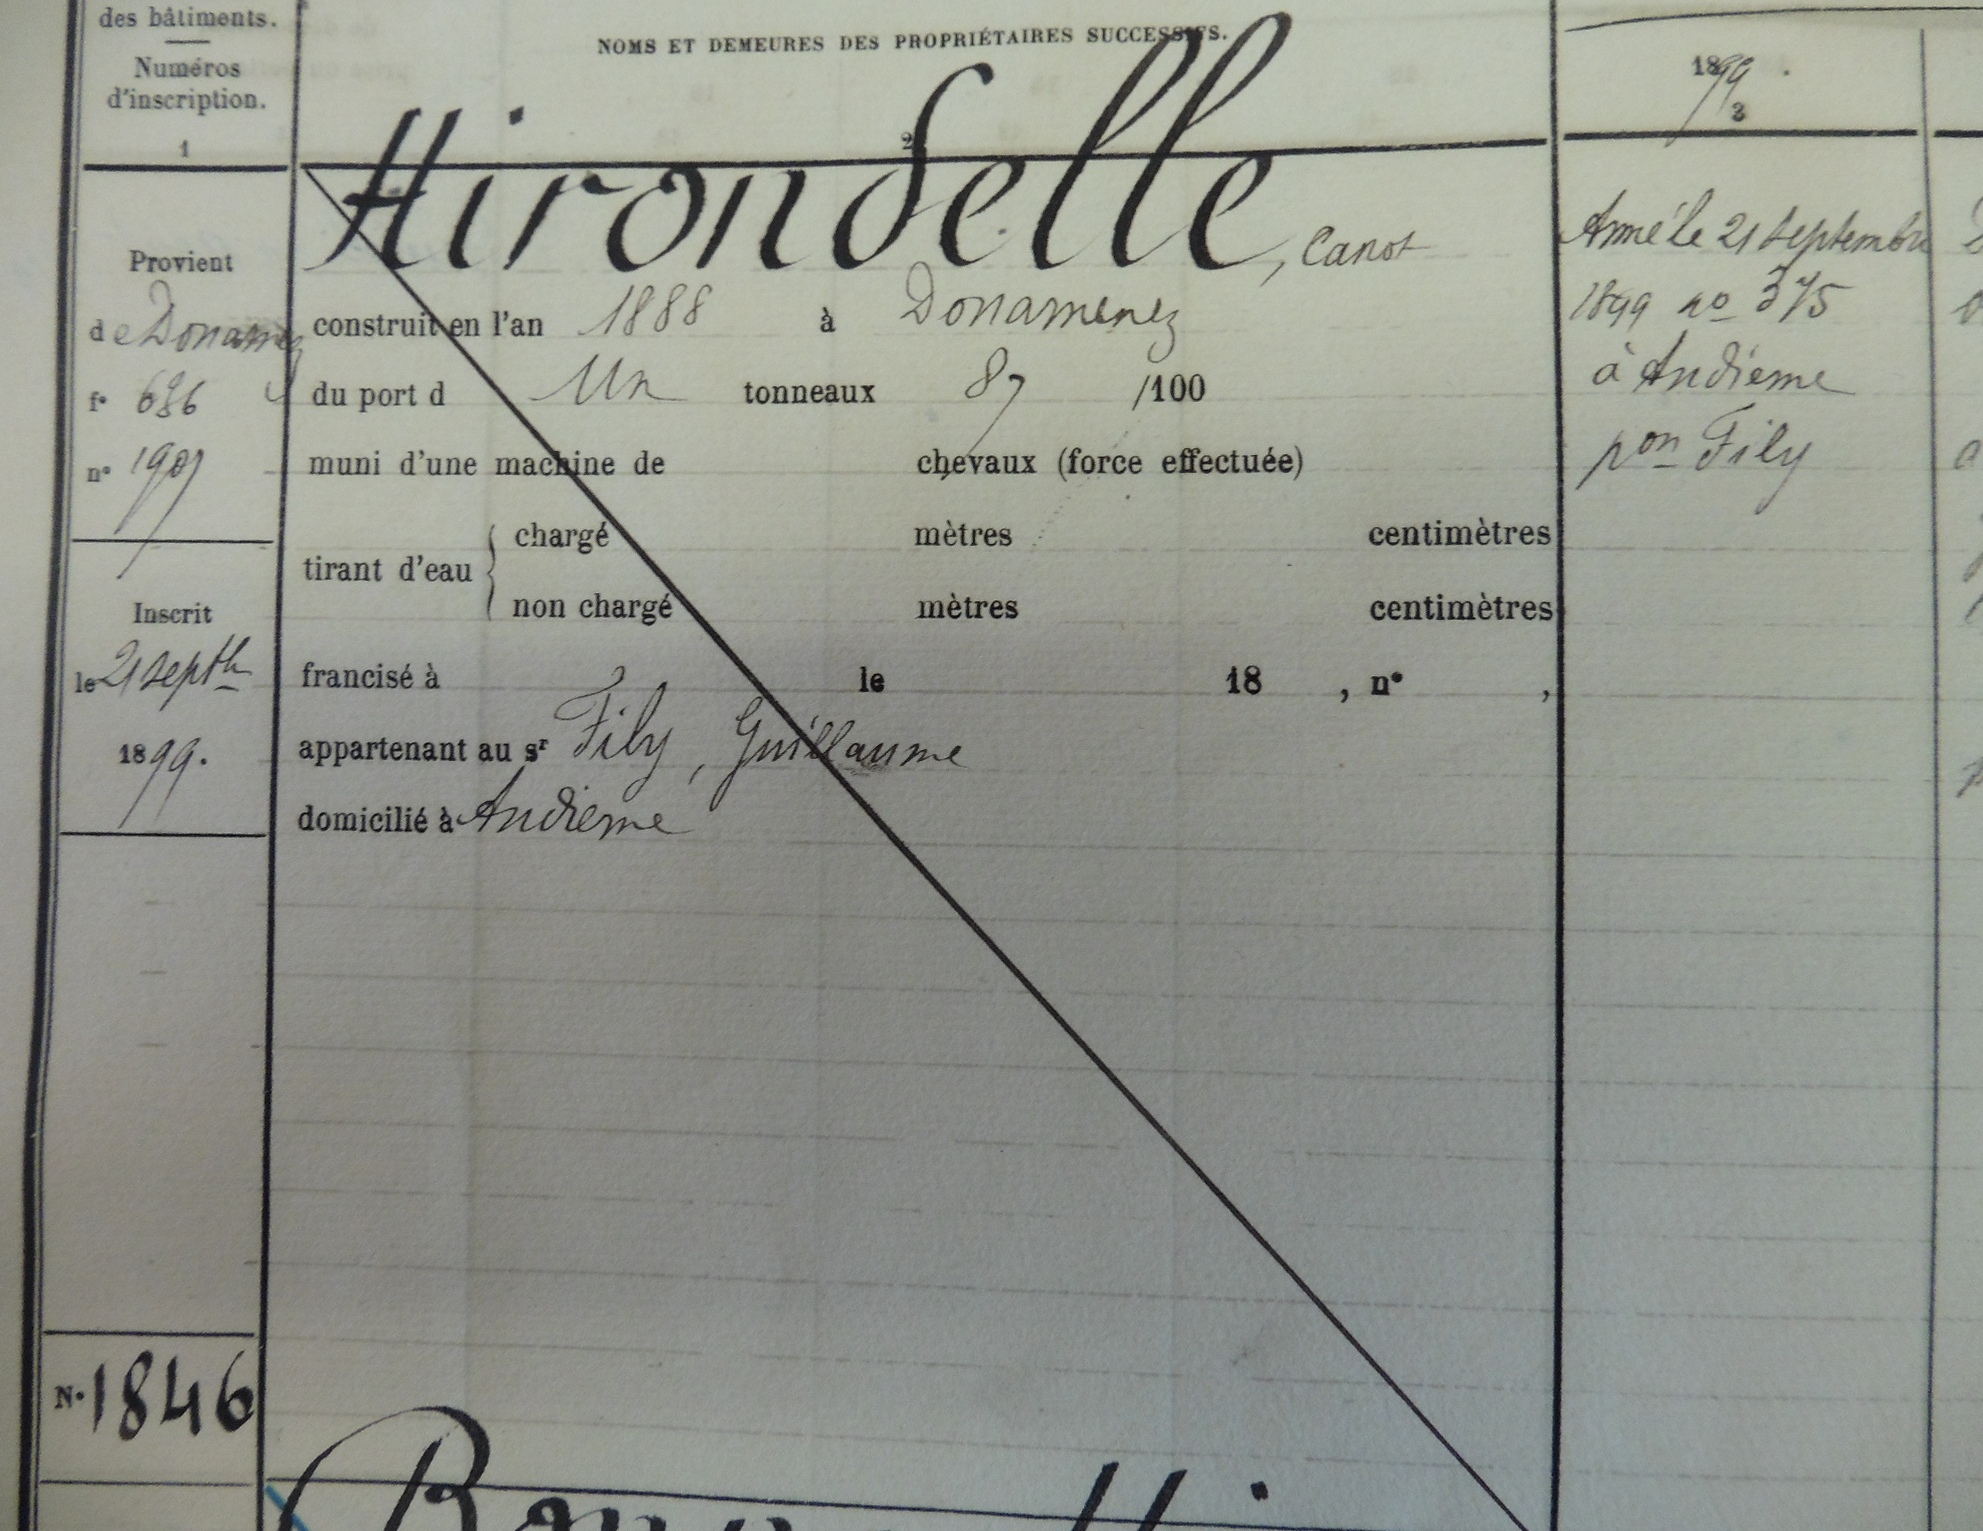 des bâtiments.
Numéros
d'inscription.
1
NOMS ET DEMEURES DES PROPRIÉTAIRES SUCCESSIFS.
2
1899.
3
Hirondelle, Canot
Provient
de Douarnez
fo 686
no 1907
Inscrit
le 21 septb
1899.
construit en l'an 1888 à Douarnenez
du port d Un tonneaux 87 /100
muni d'une machine de chevaux (force effectuée)
tirant d'eau { chargé mètres centimètres
non chargé mètres centimètres
francisé à le 18 , n° ,
appartenant au sr Fily, Guillaume
domicilié à Audierne
Armé le 21 septembre
1899 no 375
à Audierne
pon Fily
N. 1846